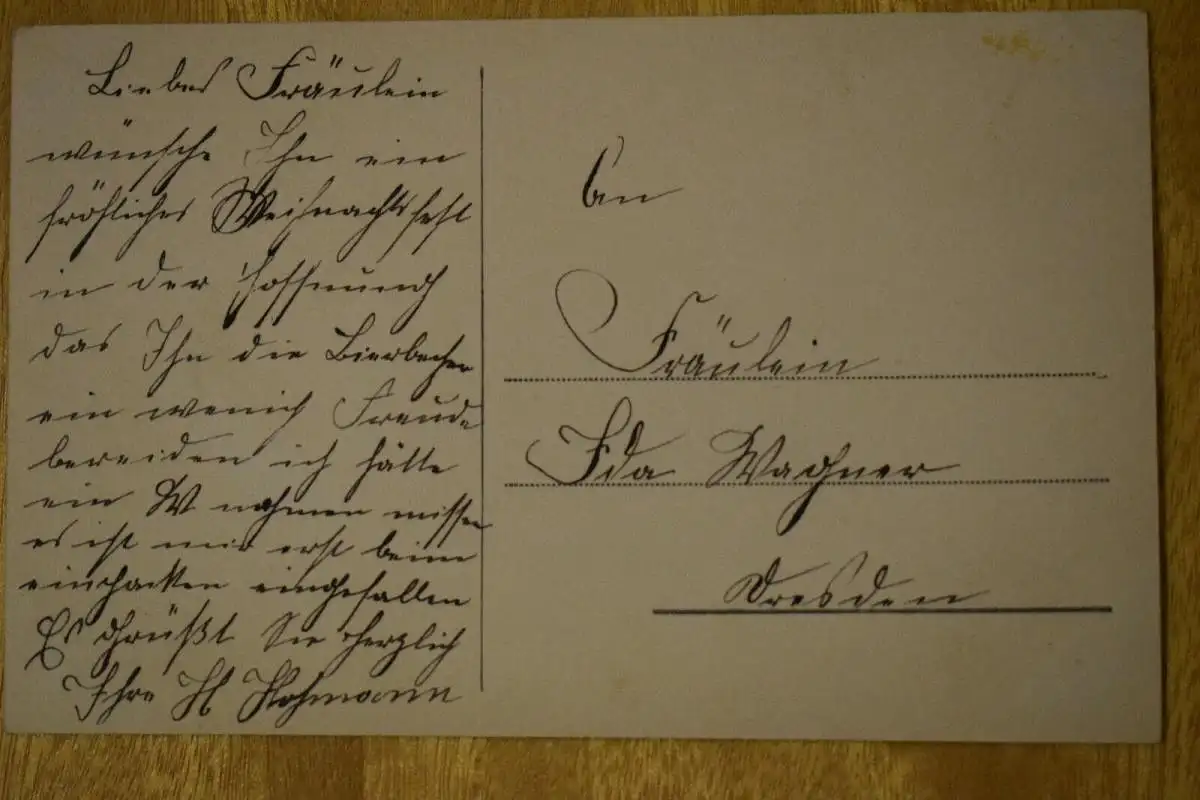 Liebes Fräulein
wünsche Ihn ein
fröhliches Weihnachtsfest
in der Hoffnung
das Ihn die Bierbecher
ein wenich Freude
bereiden ich hätte
ein W nahmen missen
es ist mir erst beim
einpacken eingefallen
Es grüßt Sie herzlich
Ihre H
An
Fräulein
Ida Wagner
Dresden